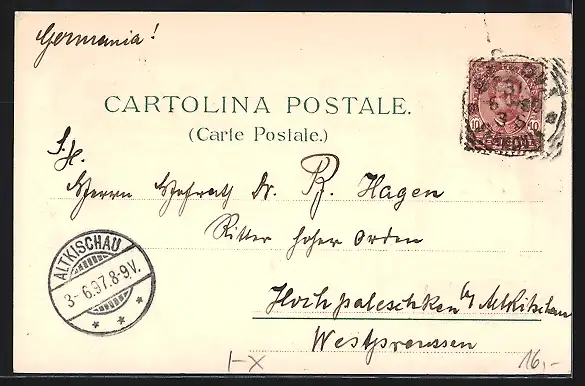 Germania!
CARTOLINA POSTALE.
(Carte Postale.)
S. H.
Herrn Hofrath Dr. B. Hagen
Ritter hoher Orden
Hochpaleschken b/ Altkischau
Westpreussen
ALTKISCHAU
3-6.97.8-9.V.
* * *
10 10
I-X
16,-